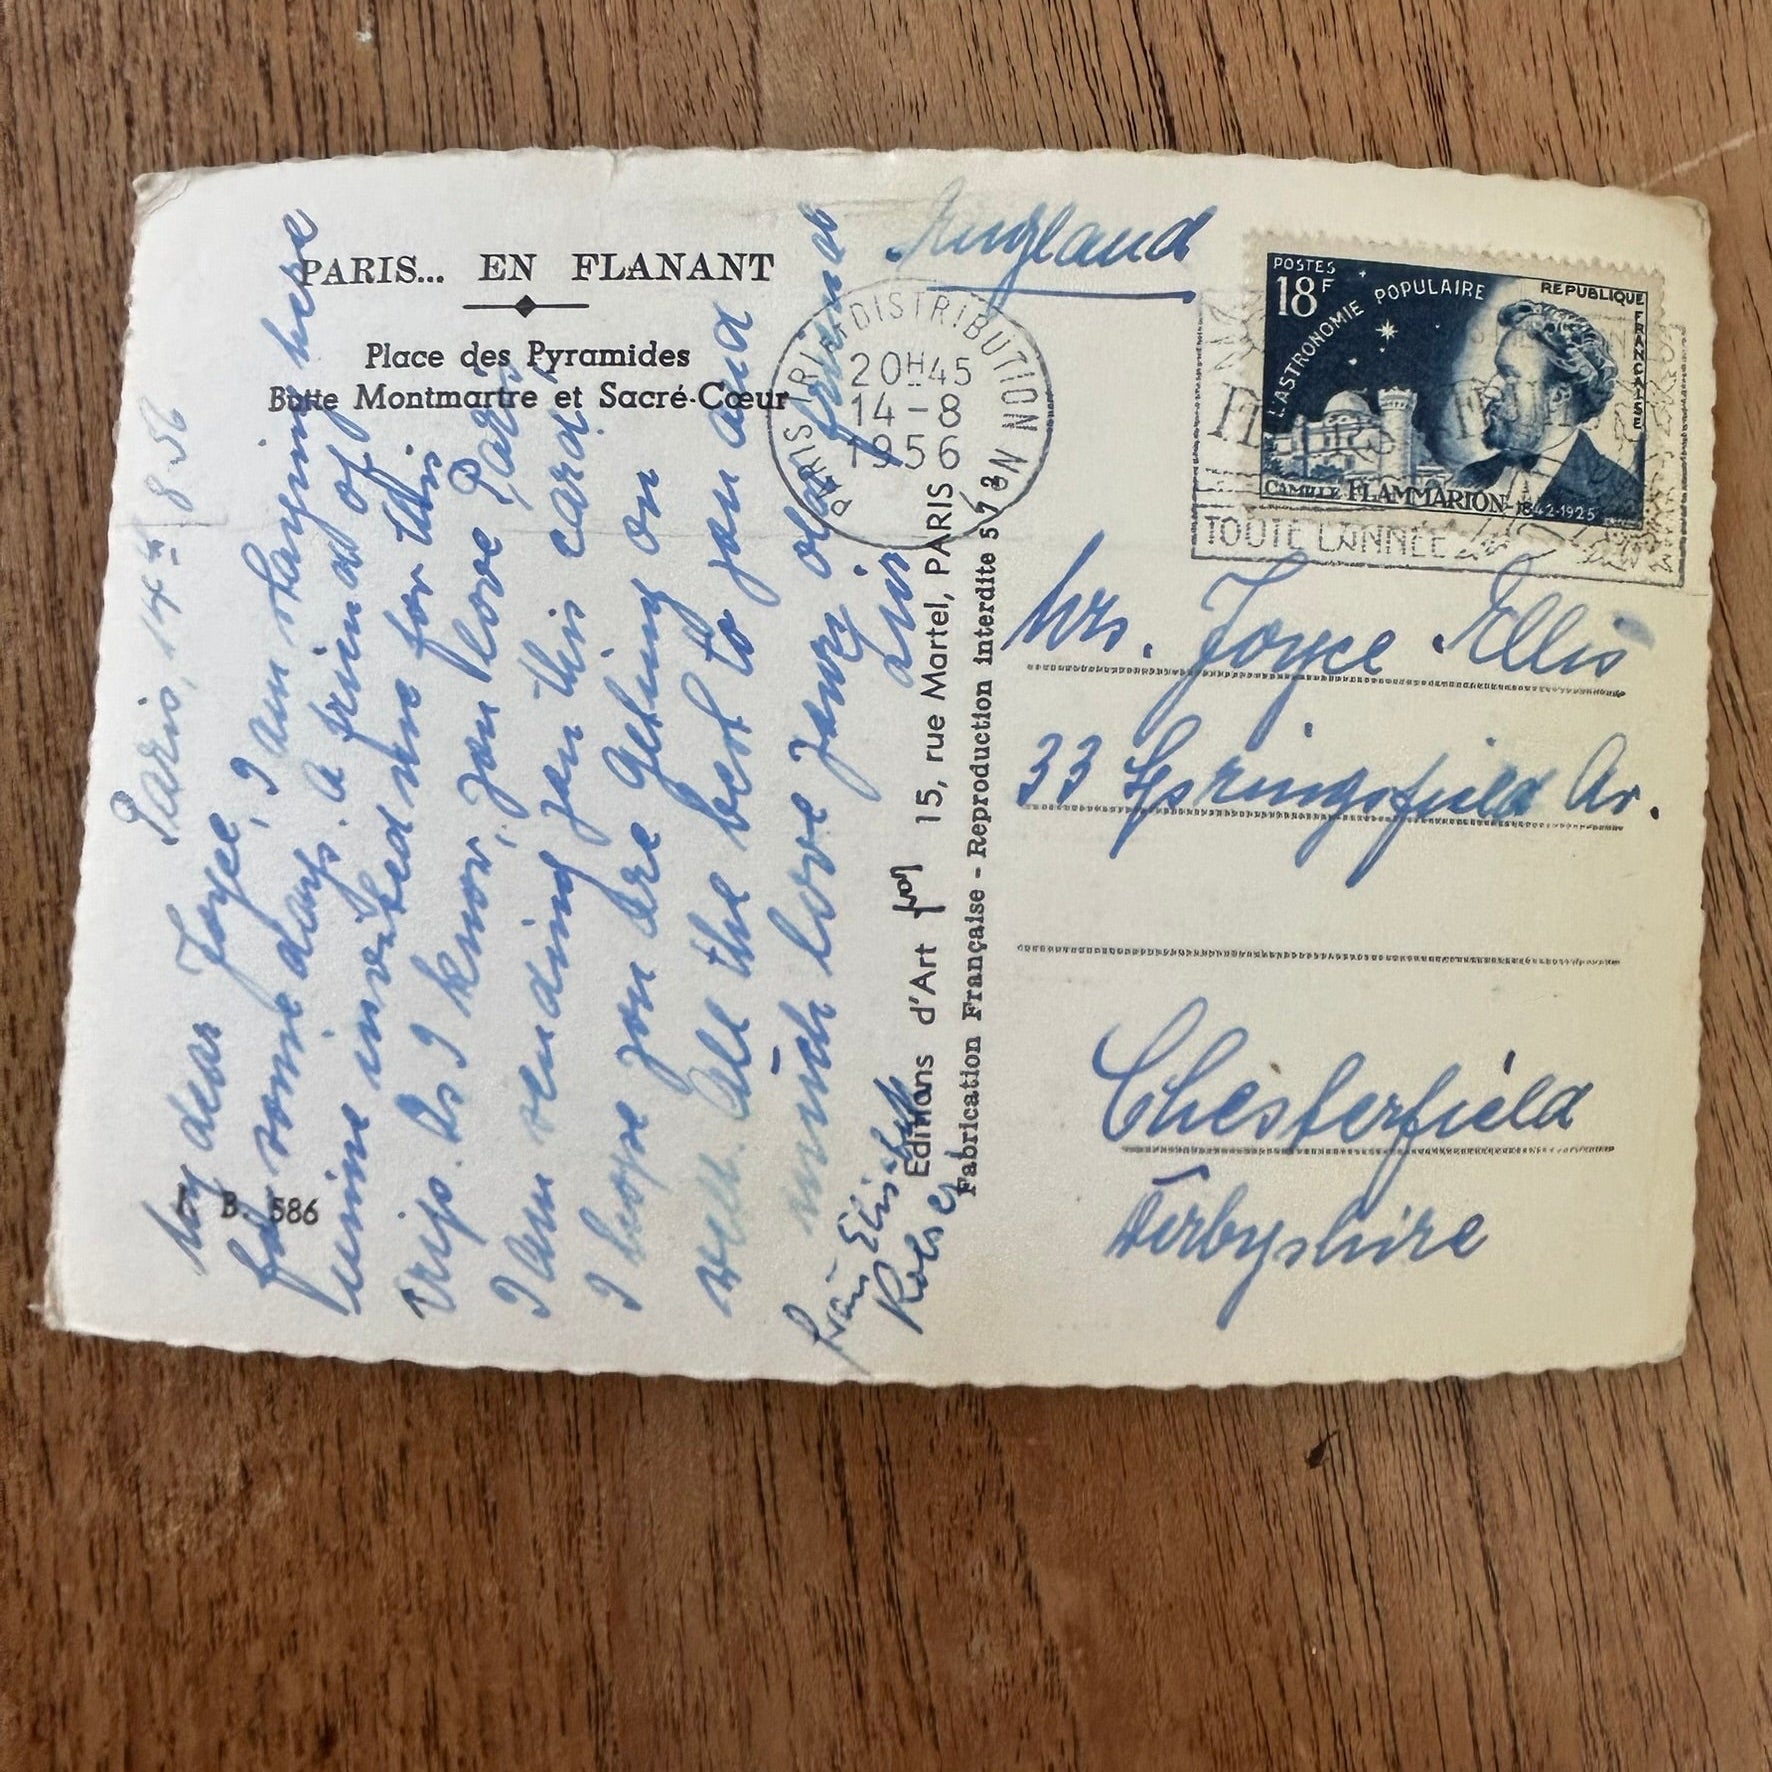 PARIS... EN FLANANT
Place des Pyramides
Butte Montmartre et Sacré-Cœur
B. 586
Paris, 14th 8.56
My dear Joyce, I am staying here
for some days. A friend of
mine invited me for this
trip. As I know, you love Paris,
I am sending you this card.
I hope you are getting on
well. All the best to you and
much love your old friend
Lis
Frau Elisabeth
Editions d'Art 15, rue Martel, PARIS
Fabrication Française - Reproduction interdite 573
PARIS TRI DISTRIBUTION
20H45
14-8
1956
England
POSTES
18F
REPUBLIQUE FRANÇAISE
L'ASTRONOMIE POPULAIRE
CAMILLE FLAMMARION 1842-1925
TOUTE L'ANNÉE
Mrs. Joyce Ellis
33 Springsfield Av.
Chesterfield
Derbyshire